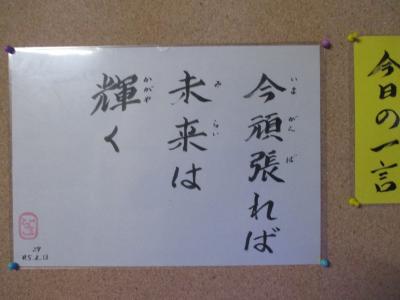 今日の一言
今頑張れば
いま がん ば
未来は
み らい
輝く
かがや
29